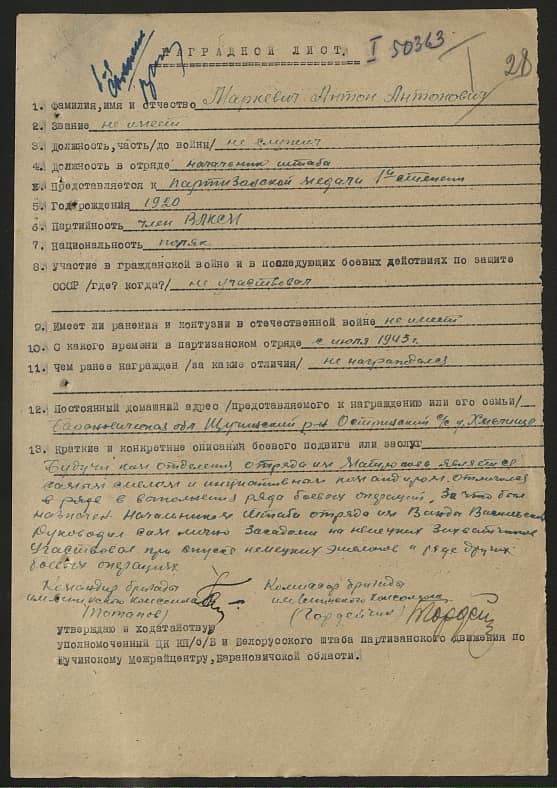 НАГРАДНОЙ ЛИСТ.
I 50363
28
1. Фамилия, имя и отчество Маркевич Антон Антонович
2. Звание не имеет
3. Должность, часть /до войны/ не служил
4. Должность в отряде начальник штаба
Представляется к партизанской медали 1ой степени
5. Год рождения 1920
6. Партийность член ВЛКСМ
7. Национальность поляк
8. Участие в гражданской войне и в последующих боевых действиях по защите
СССР /где? когда?/ не участвовал
9. Имеет ли ранения и контузии в отечественной войне не имеет
10. С какого времени в партизанском отряде с июля 1943 г.
11. Чем ранее награжден /за какие отличия/ не награждался
12. Постоянный домашний адрес /представляемого к награждению или его семьи/
Барановичская обл. Щучинский р-н с/с д.
13. Краткие и конкретные описания боевого подвига или заслуг
Будучи ком. отделения, отряда им. является
самым смелым и инициативным командиром, отличился
в ряде в выполнения ряда боевых операций, За что был
назначен Начальником Штаба отряда им. Ванды
Руководил сам лично Засадами на немецких Захватчиков
Участвовал при спуске немецких эшелонов и ряде других
боевых операциях
Командир бригады
им. Ленинского комсомола
Комиссар бригады
им. Ленинского Комсомола
(Гордейчик)
утверждаю и ходатайствую
уполномоченный ЦК КП/б/Б и Белорусского штаба Партизанского движения по
Щучинскому Межрайцентру, Барановичской области.